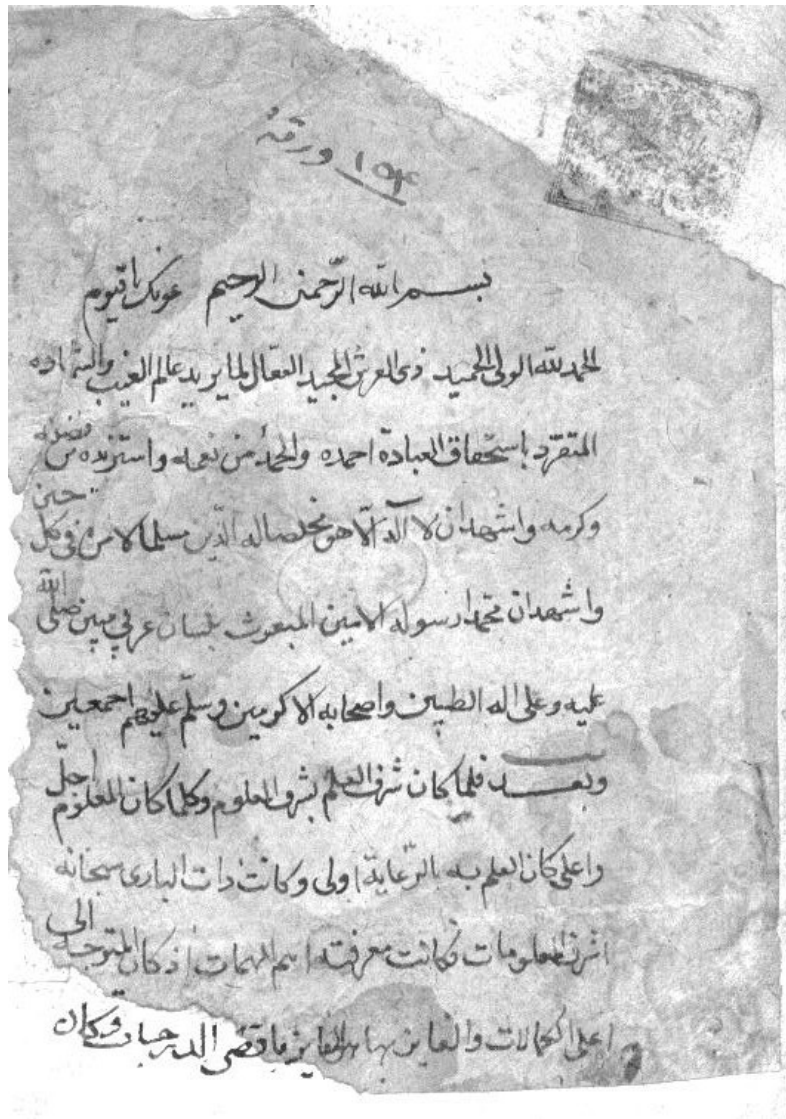 ١٥٤ ورقة
بسم الله الرحمن الرحيم عونك يا قيوم
الحمد لله الولى الحميد ذى العرش المجيد الفعال لما يريد عالم الغيب والشهاده
المتفرد باستحقاق العبادة احمده والحمد من نعمه واستزيده من فضله
وكرمه واشهد ان لا اله الا هو مخلصا له الدين مسلما لامره فى كل حين
واشهد ان محمدا رسوله الامين المبعوث بلسان عربي مبين صلى الله
عليه وعلى اله الطيبين واصحابه الاكرمين وسلم عليهم اجمعين
وبعد فلما كان شرف العلم بشرف المعلوم وكلما كان المعلوم اجل
واعلى كان العلم به بالرعاية اولى وكانت ذات البارى سبحانه
اشرف المعلومات فكانت معرفته اهم المهمات اذ كان المتوجه الى
اعلى الكمالات والفايز بها هو الفايز باقصى الدرجات وكان